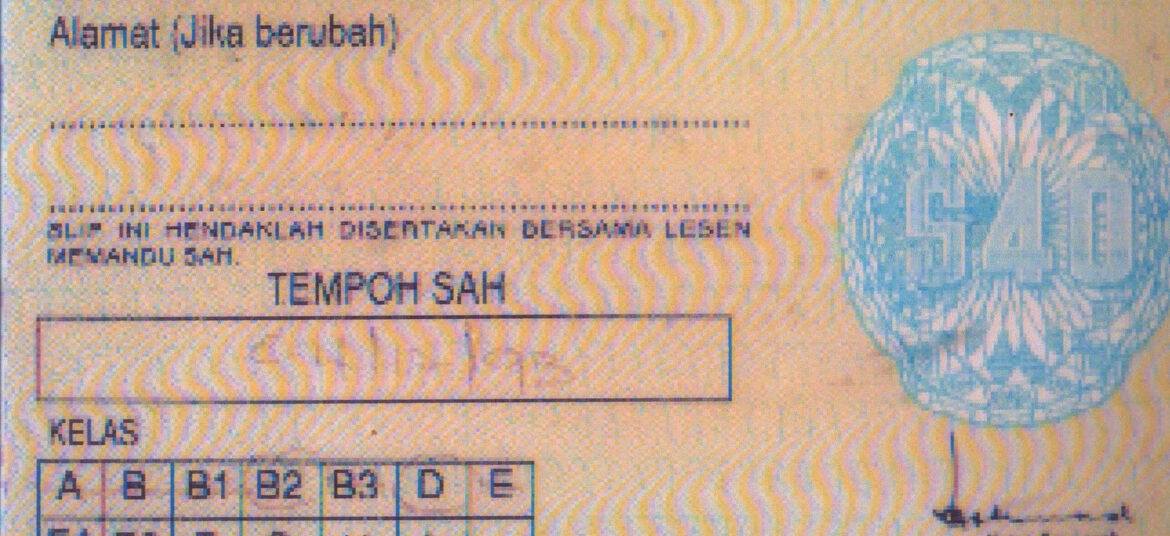 Alamat (Jika berubah)
SLIP INI HENDAKLAH DISERTAKAN BERSAMA LESEN
MEMANDU SAH.
TEMPOH SAH
KELAS
A B B1 B2 B3 D E
$40